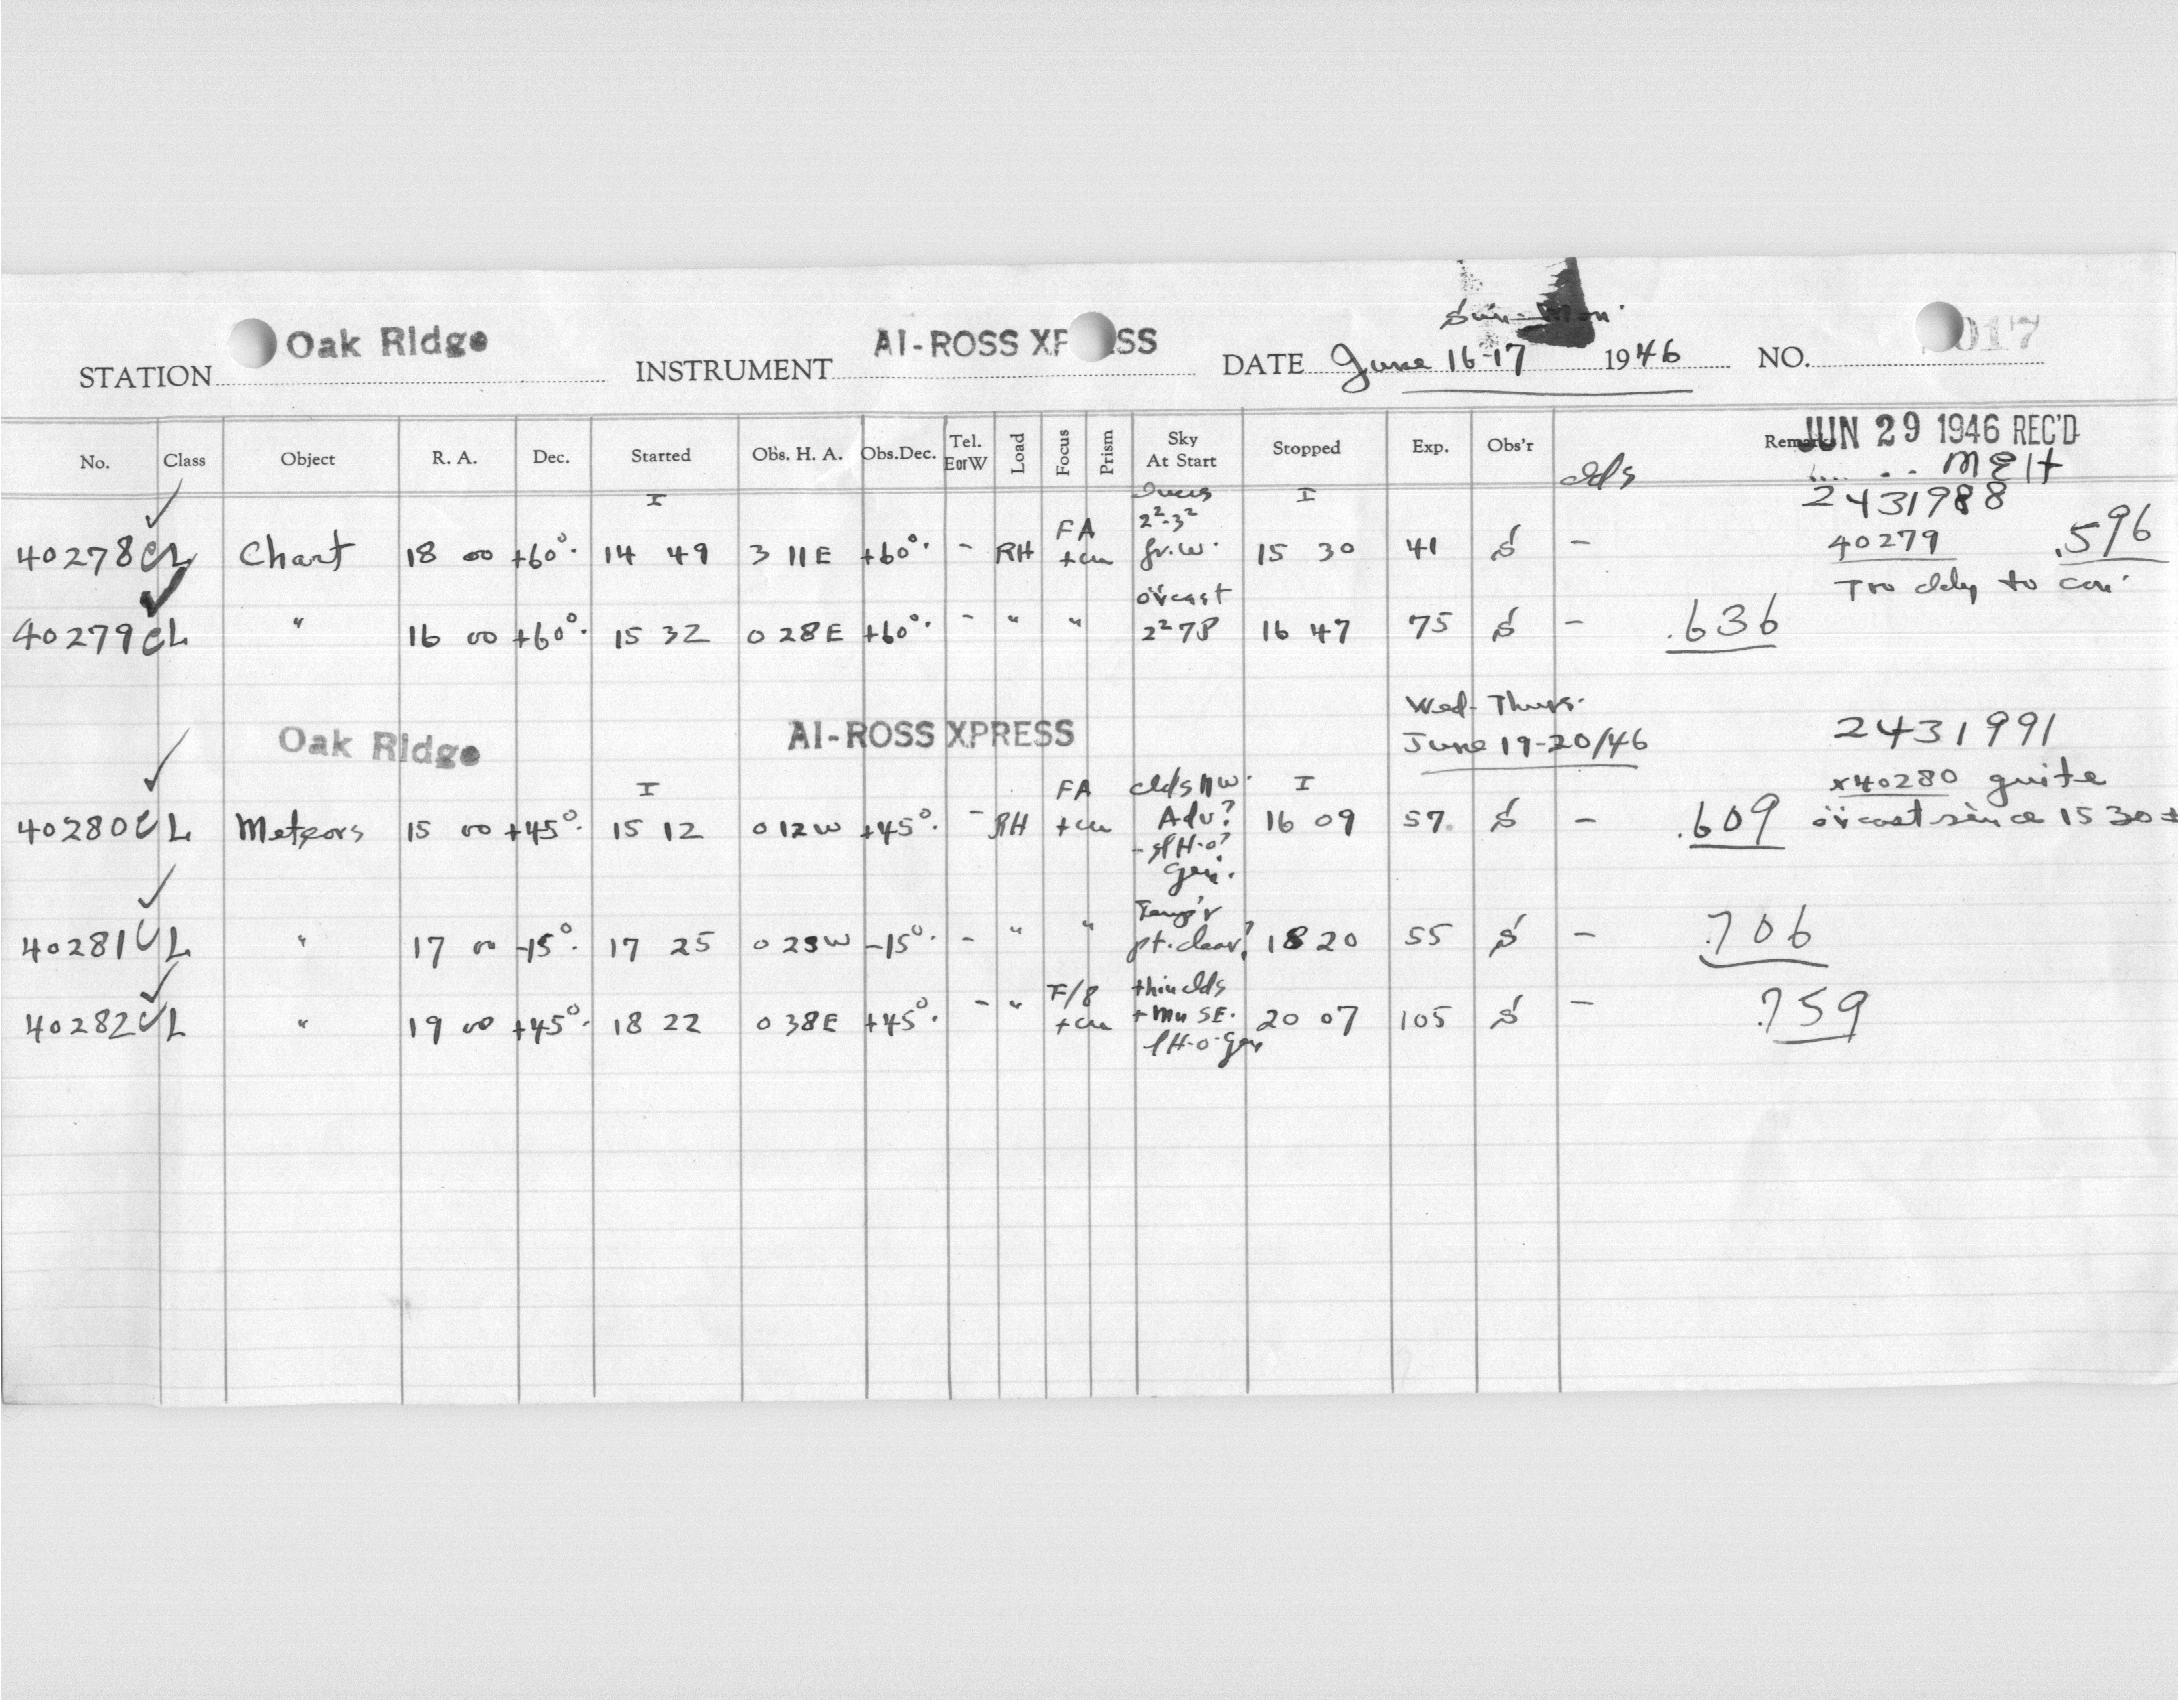 Sun-Mon.
STATION Oak Ridge INSTRUMENT AI-ROSS XP SS DATE June 16-17 1946 NO. 017
No. Class Object R. A. Dec. Started Obs. H. A. Obs.Dec. Tel. EorW Load Focus Prism Sky At Start Stopped Exp. Obs'r Remarks
JUN 29 1946 REC'D
clds
I I 2431988
40278 CL Chart 18 00 +60°. 14 49 3 11E +60°. - RH FA 2²-3² 15 30 41 S - 40279 .596
Too cldy to con'
ovcast
40279 CL " 16 00 +60°. 15 32 0 28E +60°. - " " 16 47 75 S - .636
Oak Ridge AI-ROSS XPRESS Wed-Thurs.
June 19-20/46 2431991
I FA clds NW. I x40280 quite
40280 C L Meteors 15 00 +45°. 15 12 0 12W +45°. - RH Adv? 16 09 57. S - .609 ovcast since 15 30±
40281 C L " 17 00 -15°. 17 25 0 25W -15°. - " " pt. clear? 18 20 55 S - .706
thin clds
40282 C L " 19 00 +45°. 18 22 0 38E +45°. - " F/8 +Mn SE. 20 07 105 S - .759